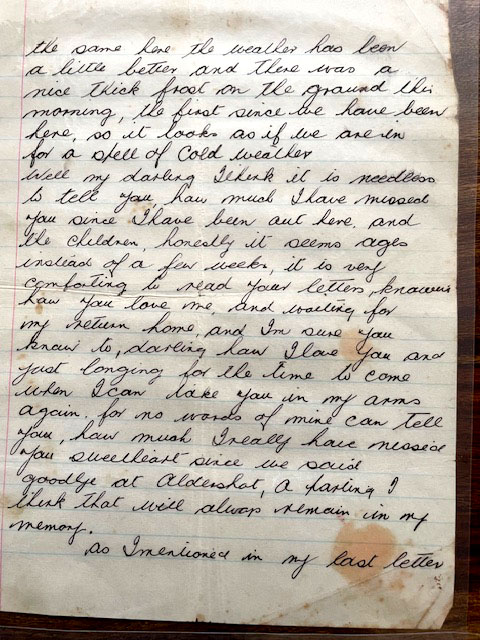 the same here the weather has been
a little better and there was a
nice thick frost on the ground this
morning, the first since we have been
here, so it looks as if we are in
for a spell of cold weather
Well my darling I think it is needless
to tell you, how much I have missed
you since I have been out here, and
the children, honestly it seems ages
instead of a few weeks, it is very
comforting to read your letters, knowing
how you love me, and waiting for
my return home, and I'm sure you
know to, darling how I love you and
just longing for the time to come
when I can take you in my arms
again. for no words of mine can tell
you, how much I really have missed
you sweetheart since we said
goodbye at Aldershot, A parting I
think that will always remain in my
memory.
As I mentioned in my last letter